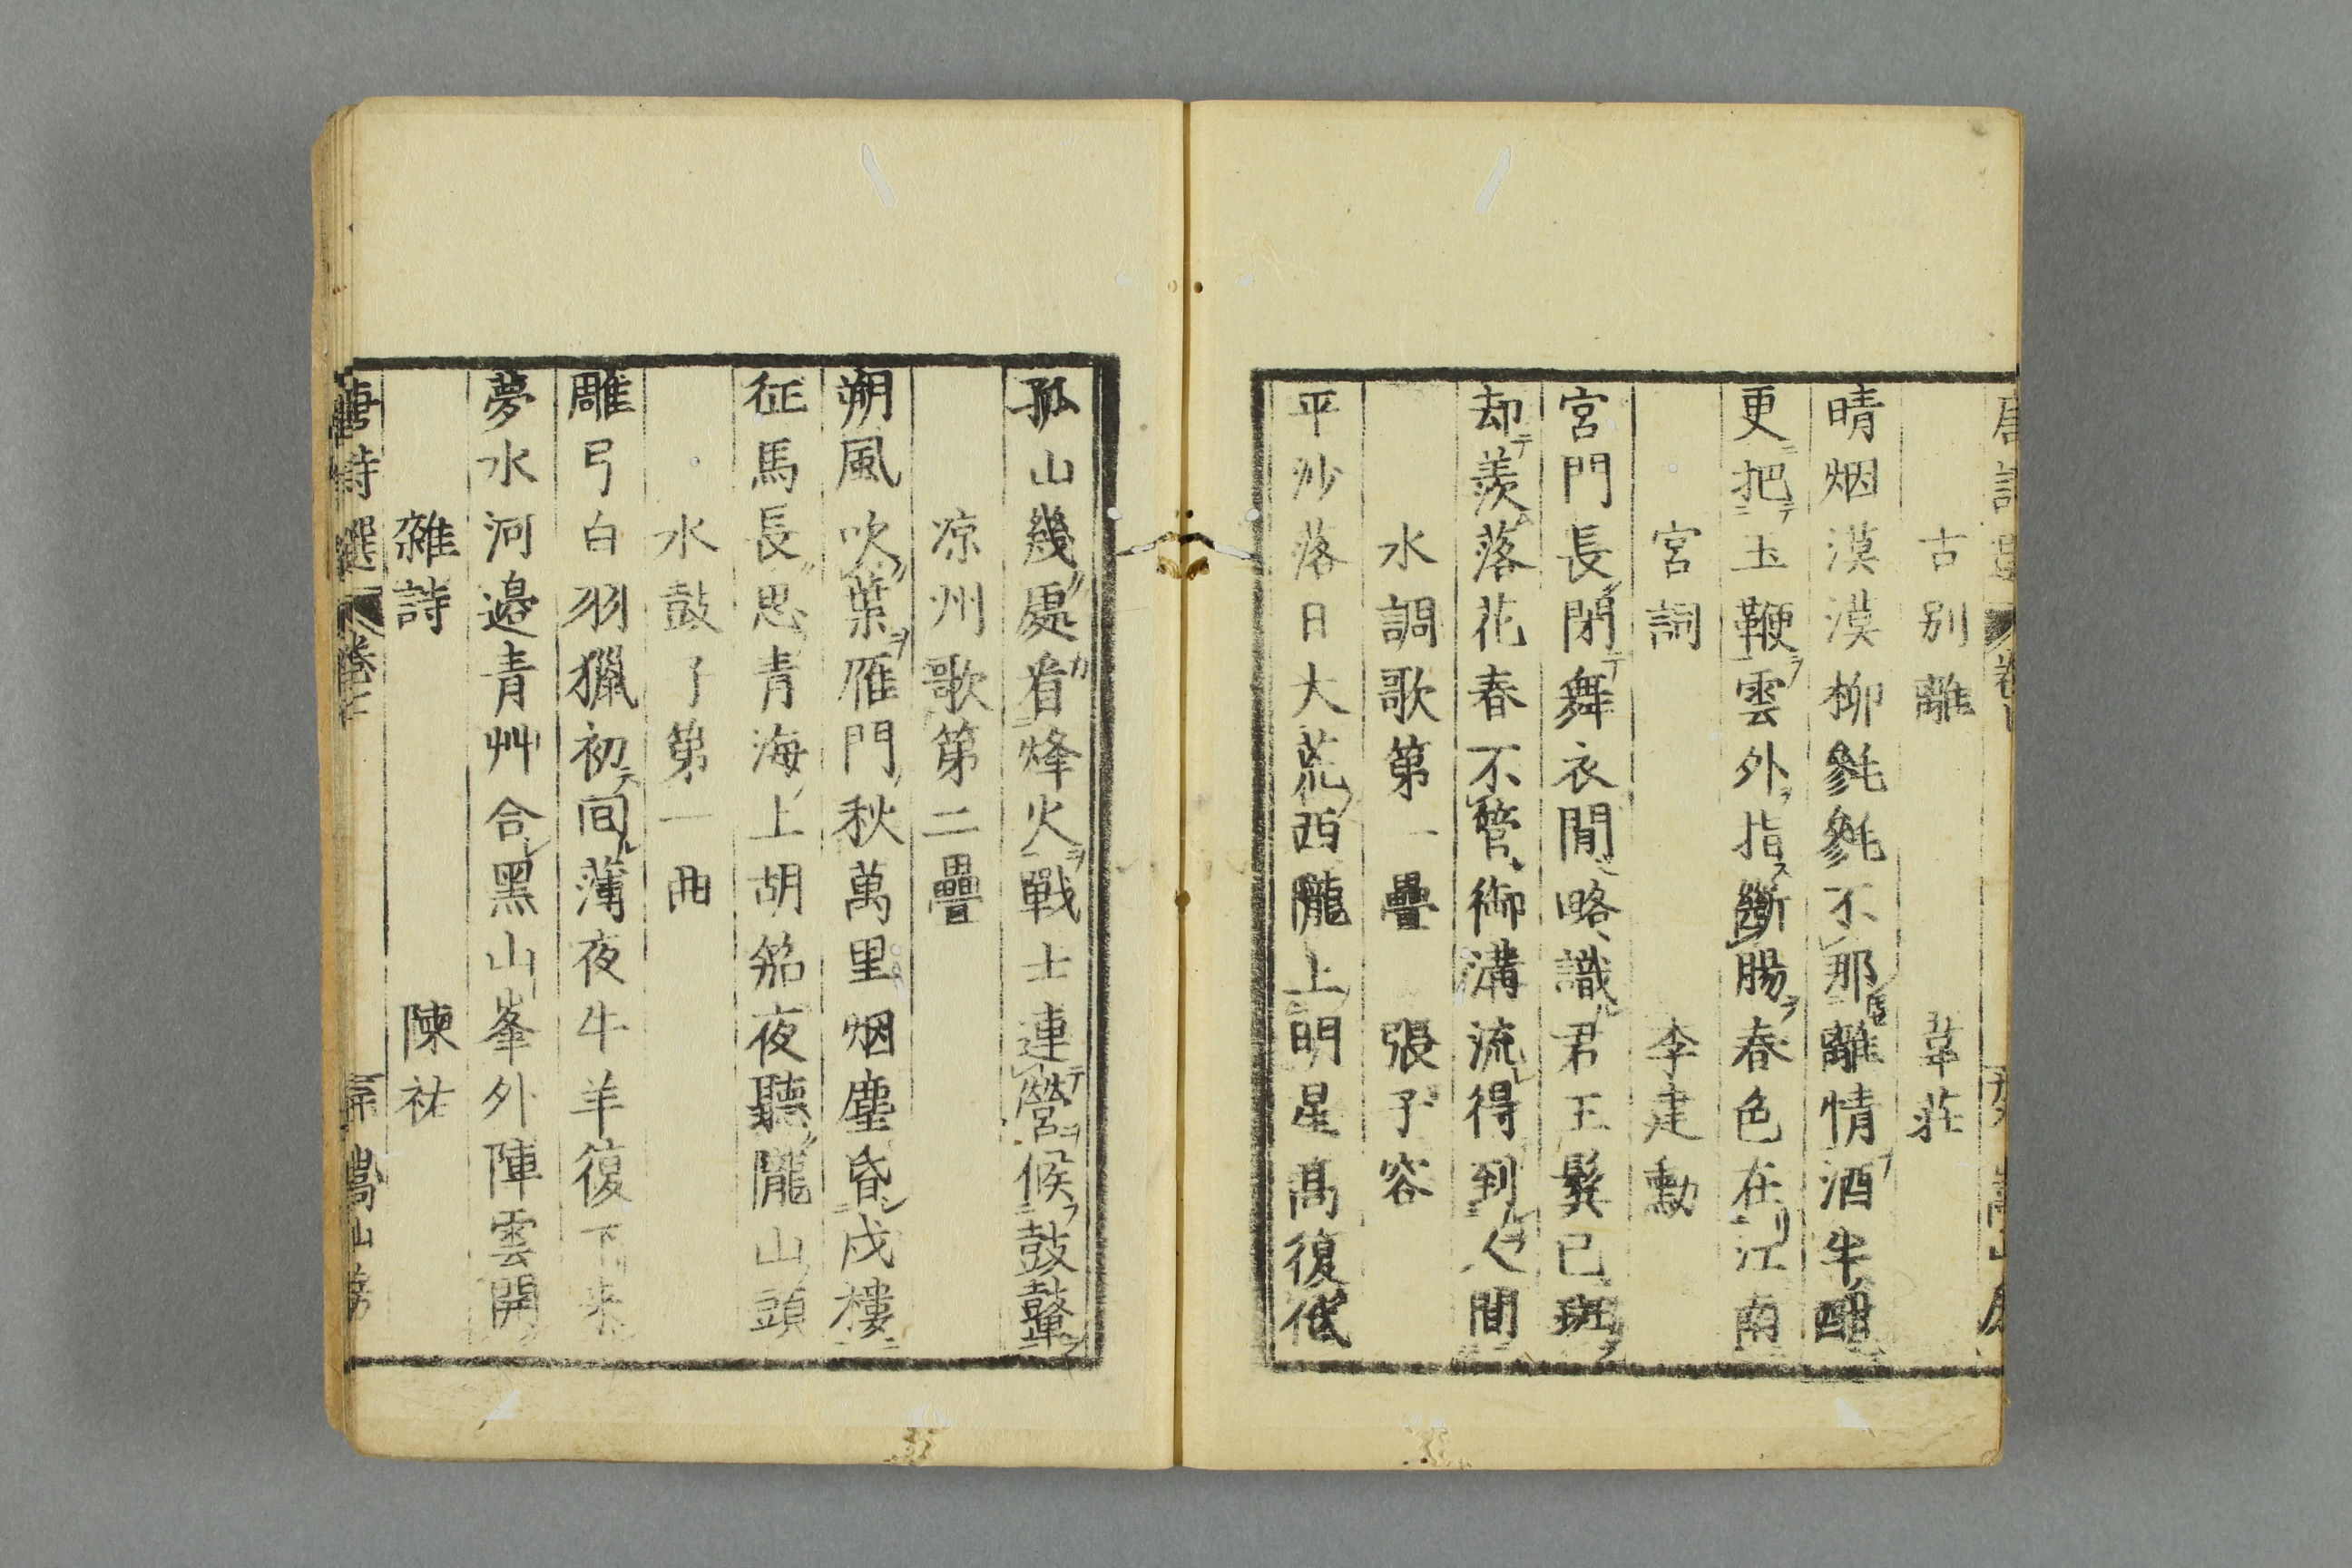 古別離 韋莊
晴烟漠漠柳毿毿不那離情酒半酣
更把玉鞭雲外指斷腸春色在江南
宮詞 李建勳
宮門長閉舞衣閒略識君王鬂已斑
却羨落花春不管御溝流得到人間
水調歌第一疊 張子容
平沙落日大荒西隴上明星髙復低
孤山幾處看烽火戰士連營候鼓鼙
凉州歌第二疊
朔風吹葉雁門秋萬里烟塵昏戍樓
征馬長思青海上胡笳夜聽隴山頭
水鼓子第一曲
雕弓白羽獵初囘薄夜牛羊復下来
夢水河邉青艸合黑山峯外陣雲開
雜詩 陳祐
唐詩選 卷七 嵩山房